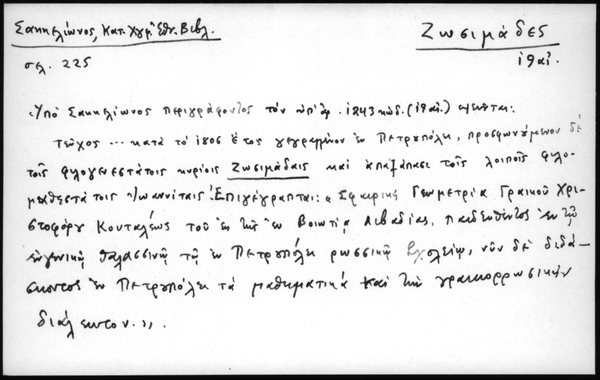 Σακκελίωνος, Κατ. Χγρ. Ἐθν. Βιβλ.
Ζωσιμάδες
σελ. 225
ιθ αἰ.
Ὑπὸ Σακκελίωνος περιγράφοντος τὸν ὑπ' ἀρ. 1243 κώδ. (ιθ αἰ.) λέγεται:
Τεῦχος ... κατὰ τὸ 1805 ἔτος γεγραμμένον ἐν Πετρουπόλει, προσφωνούμενον δὲ
τοῖς φιλογενεστάτοις κυρίοις Ζωσιμάδαις καὶ ἅπαξάπασι τοῖς λοιποῖς φιλο-
μαθεστάτοις Ἰωαννίταις. Ἐπιγέγραπται: "Σφαιρικὴ Γεωμετρία Γραικοῦ Χρι-
στοφόρου Κουταλέως τοῦ ἐκ τῆς ἐν Βοιωτίᾳ Λιβαδίας, παιδευθέντος ἐν τῷ
εὐγενικῷ θαλασσινῷ τῷ ἐν Πετρουπόλει ρωσσικῷ σχολείῳ, νῦν δὲ διδά-
σκοντος ἐν Πετρουπόλει τὰ μαθηματικὰ καὶ τὴν γραικορρωσικὴν
διάλεκτον.".